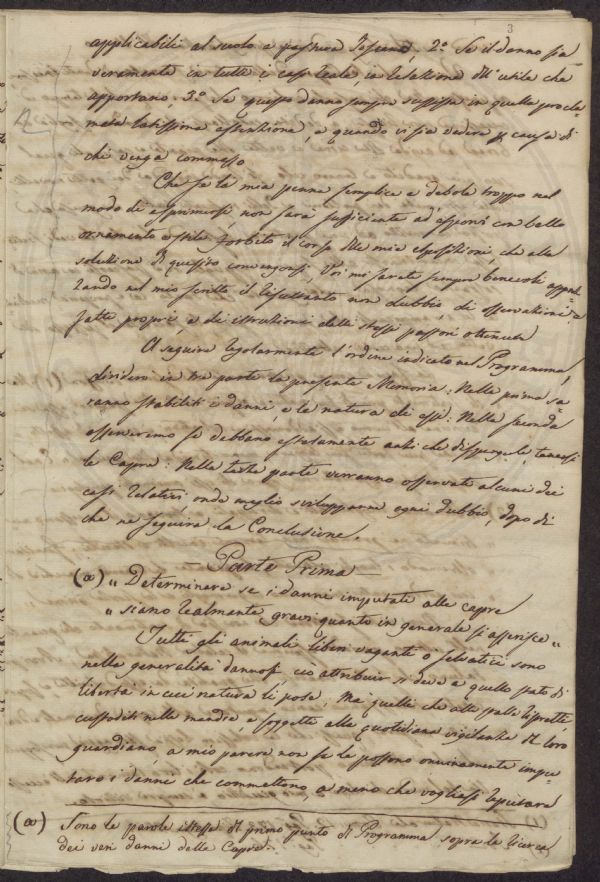 3
applicabili al suolo e pastura Toscano, 2.° Se il danno sia
veramente in tutti i casi reale, in relazione dll' utile che
apportano, 3.° Se questo danno sempre sussista in quella procla-
mata latissima estensione, e quando vi sia vedere p causa di
chi venga commesso.
Che se la mia penna semplice e debole troppo nel
modo di esprimersi, non sarà sufficiente ad esporvi con bello
ornamento e stile forbito il corso dlle mie esposizioni, che alla
soluzione dl quesito convengonsi, Voi mi sarete sempre benevoli apprez-
zando nel mio scritto il resultato non dubbio di osservazioni
fatte proprie, e di istruzioni dalli stessi pastori ottenute
A seguire regolarmente l'ordine indicato nel Programma,
dividerò in tre parte la presente Memoria: Nella prima sa-
ranno stabiliti i danni, e la natura di essi: Nella seconda
osserveremo se debbano assolutamente anzi che disperderle, tenersi
le Capre: Nella terza parte verranno osservati alcuni dei
casi relativi, onde meglio sviluppare ogni dubbio, dopo di
che ne seguirà la Conclusione.
— Parte Prima —
(a) „ Determinare se i danni imputati alle capre
„ siano realmente gravi quanto in generale si asserisce „
Tutti gli animali liberi vaganti o selvatici sono
nelle generalità dannosi, ciò attribuir si deve a quello stato di
libertà in cui natura li pose; Ma quelli che alle stalle ristretti,
custoditi nelle mandre, e soggette alla quotidiana vigilanza dl loro
guardiano, a mio parere non se le possono onninamente impu-
tare i danni che commettono, a meno che vogliasi reputare
(a) Sono le parole istesse dl primo punto dl Programma sopra la ricerca
dei veri danni delle Capre.